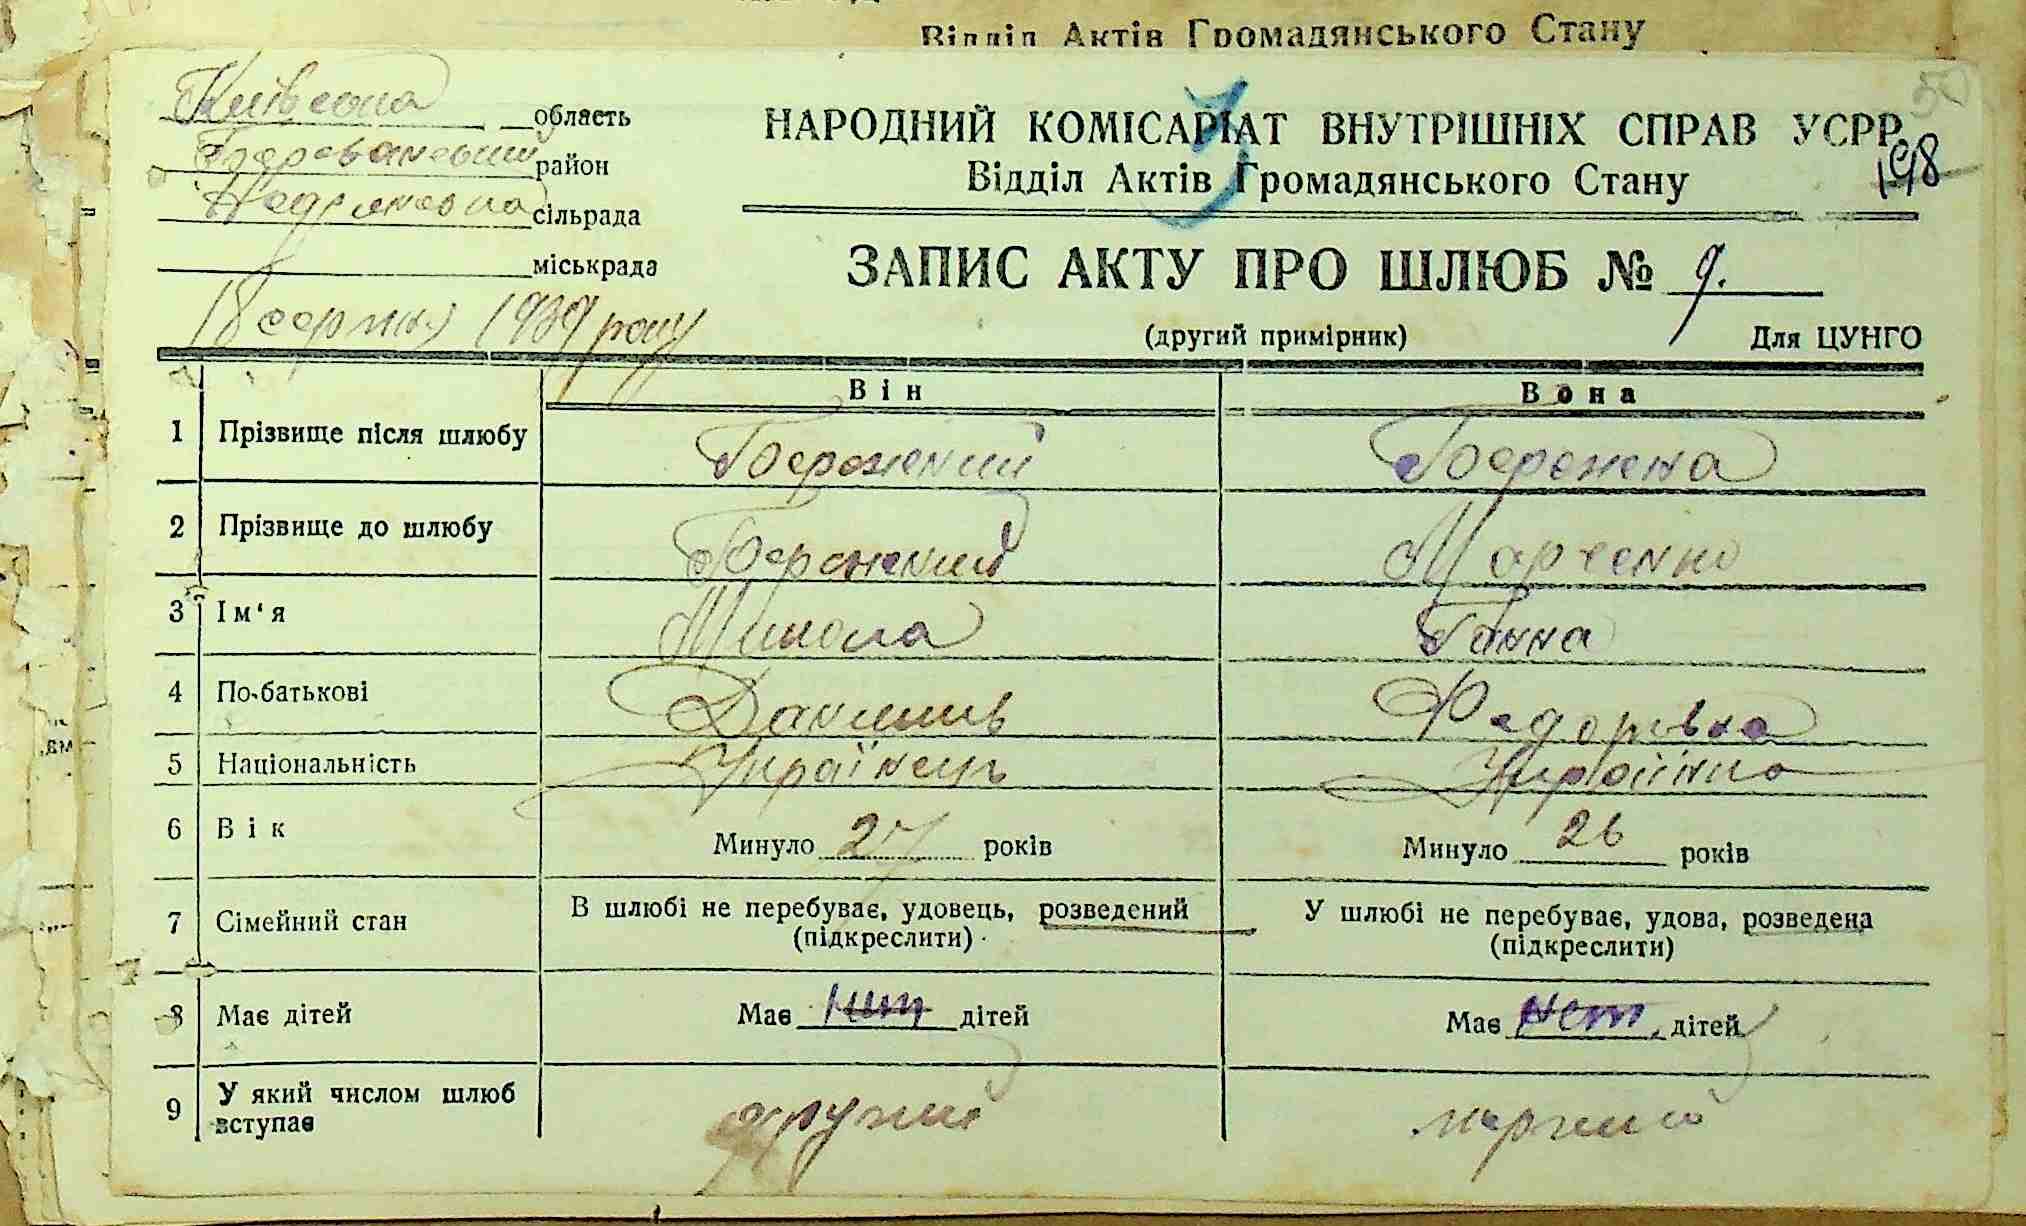 Відділ Актів Громадянського Стану
50
Київська область
НАРОДНИЙ КОМІСАРІАТ ВНУТРІШНІХ СПРАВ УСРР
район
198
Відділ Актів Громадянського Стану
сільрада
міськрада
ЗАПИС АКТУ ПРО ШЛЮБ № 9.
18 серпня 1939 року
(другий примірник) Для ЦУНГО
Він Вона
1 Прізвище після шлюбу
2 Прізвище до шлюбу
3 Ім'я Микола Ганна
4 По-батькові Данилив Федоривна
5 Національність Українець Українка
6 Вік Минуло 27 років Минуло 26 років
7 Сімейний стан В шлюбі не перебуває, удовець, розведений У шлюбі не перебуває, удова, розведена
(підкреслити) (підкреслити)
8 Має дітей Має нет дітей Має нет дітей
9 У який числом шлюб вступає другий